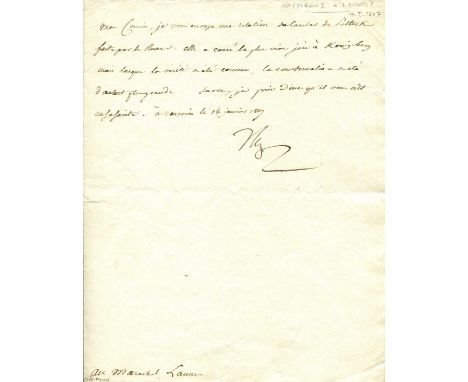 NAPOLEON I à LANNES
14.I.1807
Mon Cousin, je vous envoye une relation du combat de Pultusk
faite par les Russes. elle a causé la plus vive joie à Konigsberg
mais lorsque la vérité a été connue, la consternation a été
d'autant plus grande. Sur ce, je prie Dieu qu'il vous ait
en sa sainte. à Varsovie le 14 janvier 1807
Np
au Marechal Lannes